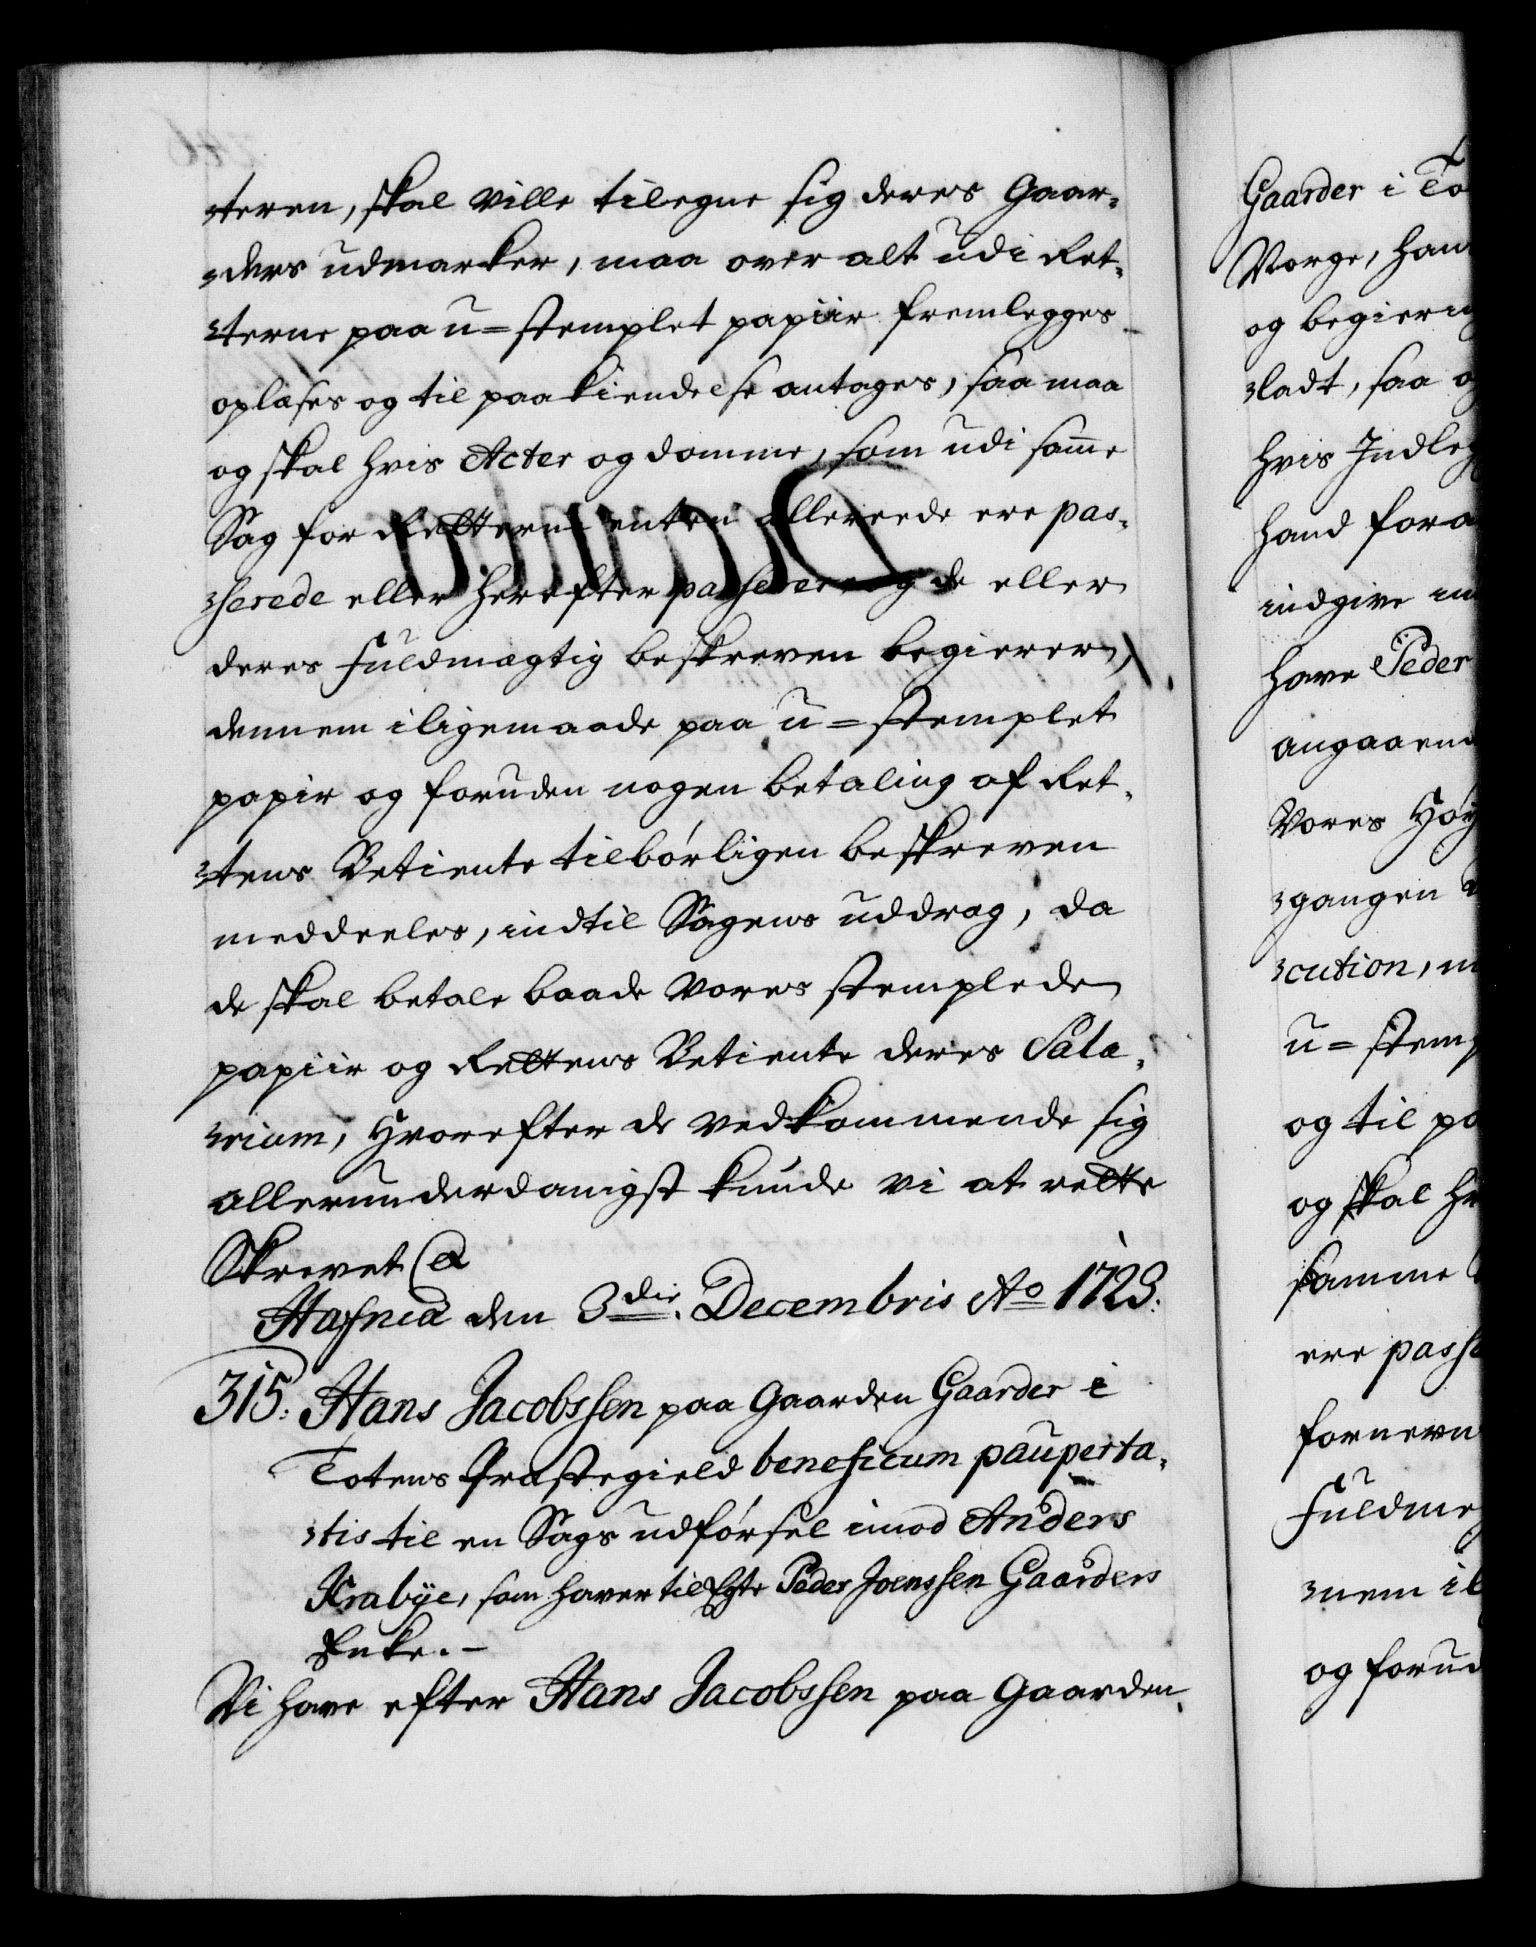 teren, skal ville tilegne sig deres Gaar-
ders udmarker, maa over alt udi Ret-
terne paa u=stemplet papiir fremlegges
oplæses og til paakiendelse antages, saa maa
og skal hvis Acter og domme, som udi same
Sag for Retterne enten allereede ere pas-
serede eller herefter passerer og de eller
deres fuldmægtig beskreven begierer,
dennem iligemaade paa u=stemplet
papir og foruden nogen betaling af Ret-
tens Betiente tilbörligen beskreven
meddeeles, indtil Sagens uddrag, da
de skal betale baade Vores stemplede
papiir og Rettens Betiente deres Sala-
rium, Hvorefter de vedkommende sig
allerunderdanigst kunde vi at rette
Skrevet &
Hafniæ den 3die Decembris Ao 1723.
315. Hans Jacobssen paa Gaarden Gaarder i
Totens Præstegield beneficum pauperta-
tis til en Sags udförsel imod Anders
Krabÿe, som haver til Egte Peder Joenssen Gaarders
Enke.
Vi have efter Hans Jacobssen paa Gaarden
Gaarder i To
Norge, han
og begiering
ladt, saa og
hvis Indleg
hand fora
indgive im
have Peder
angaaend
Vores Höy
gangen
cution, m
u=stemp
og til pa
og skal hv
samme
ere passe
fornevn
Fuldme
nem il
og forud